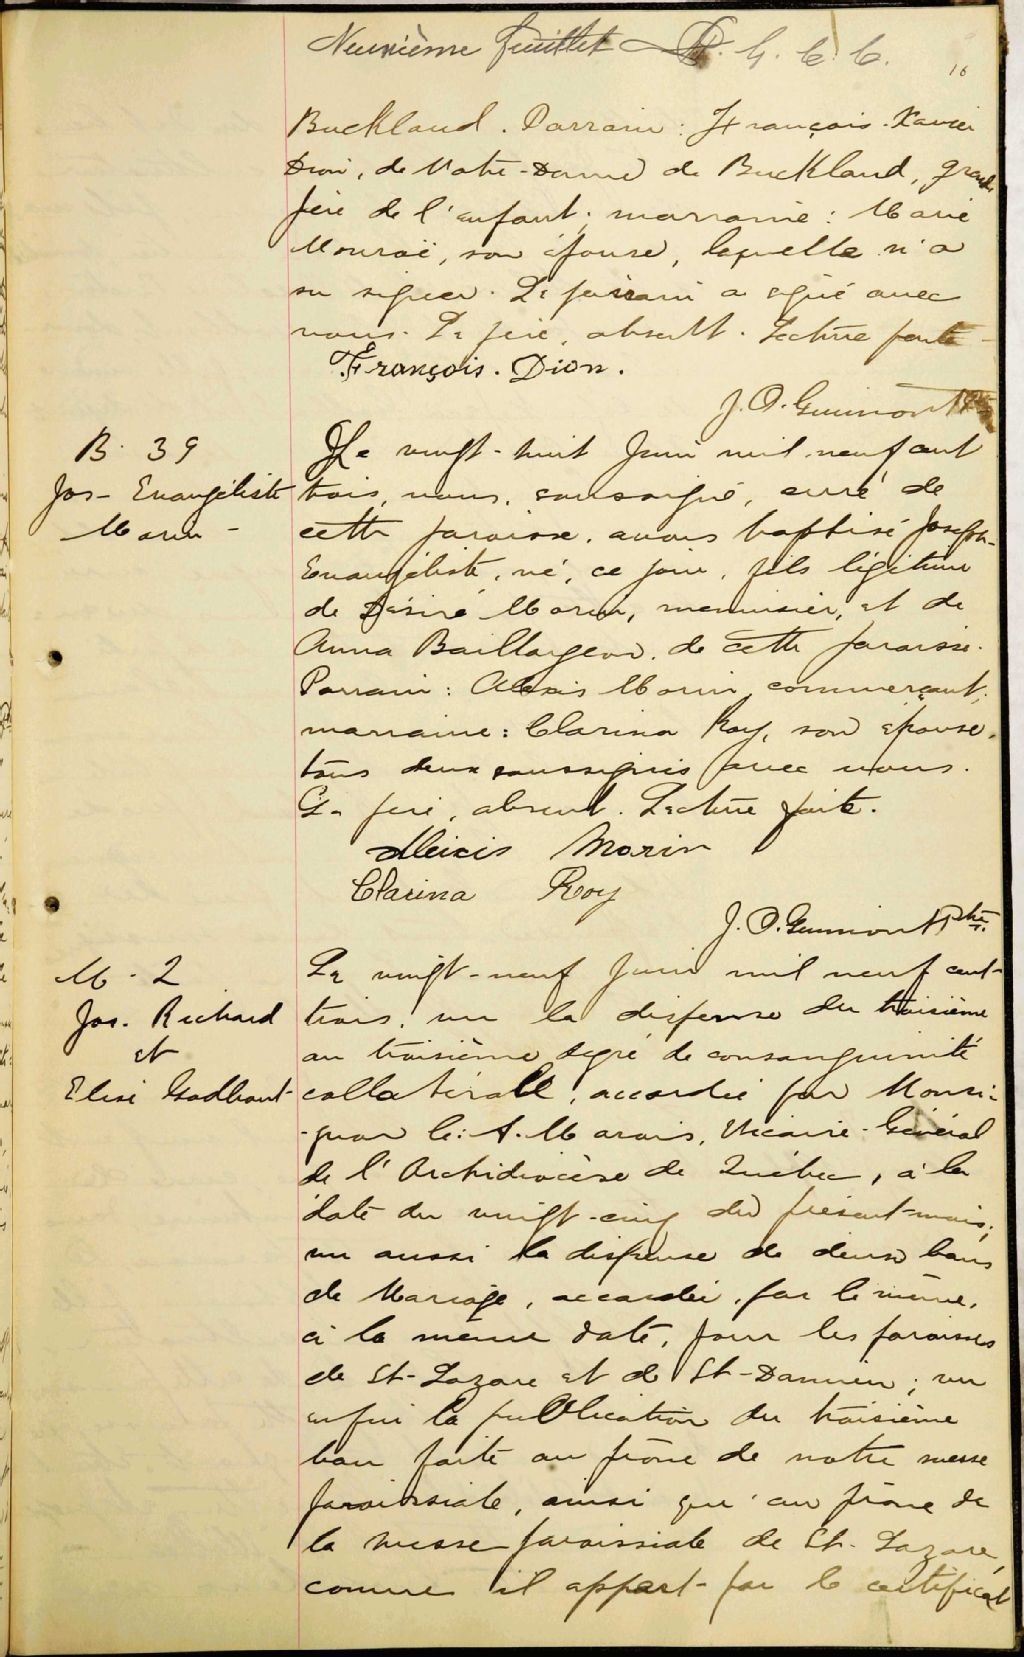 Neuvième feuillet G. C. C.
16
Buckland. Parrain: François-Xavier
Dion, de Notre-Dame de Buckland, grand
père de l'enfant; marraine: Marie
son épouse, laquelle n'a
su signer. Le parrain a signé avec
nous. Le père, absent. Lecture faite
François. Dion.
J. O. Guimont Ptre
B. 39
Jos- Evangéliste
Morin -
Le vingt-huit Juin mil neuf cent
trois, nous, soussigné, curé de
cette paroisse, avons baptisé Joseph-
Evangéliste, né, ce jour, fils légitime
de Désiré Morin, menuisier, et de
Anna Baillargeon, de cette paroisse.
Parrain: Alexis Morin, commerçant;
marraine: Clarina Roy, son épouse,
tous deux soussignés avec nous.
Le père, absent. Lecture faite.
Alexis Morin
Clarina Roy
J. O. Guimont Ptre.
M. 2
Jos. Richard
et
Elise Godbout
Le vingt-neuf Juin mil neuf cent-
trois, vu la dispense du troisième
au troisième degré de consanguinité
collatérale, accordée par Monsei-
-gneur C. A. Marois, Vicaire-Général
de l'Archidiocèse de Québec, à la
date du vingt-cinq du présent mois;
vu aussi la dispense de deux bans
de Mariage, accordée, par le même,
à la même date, pour les paroisses
de St-Lazare et de St-Damien; vu
enfin la publication du troisième
ban faite au prône de notre messe
paroissiale, ainsi qu'au prône de
la messe paroissiale de St. Lazare,
comme il appert par le certificat